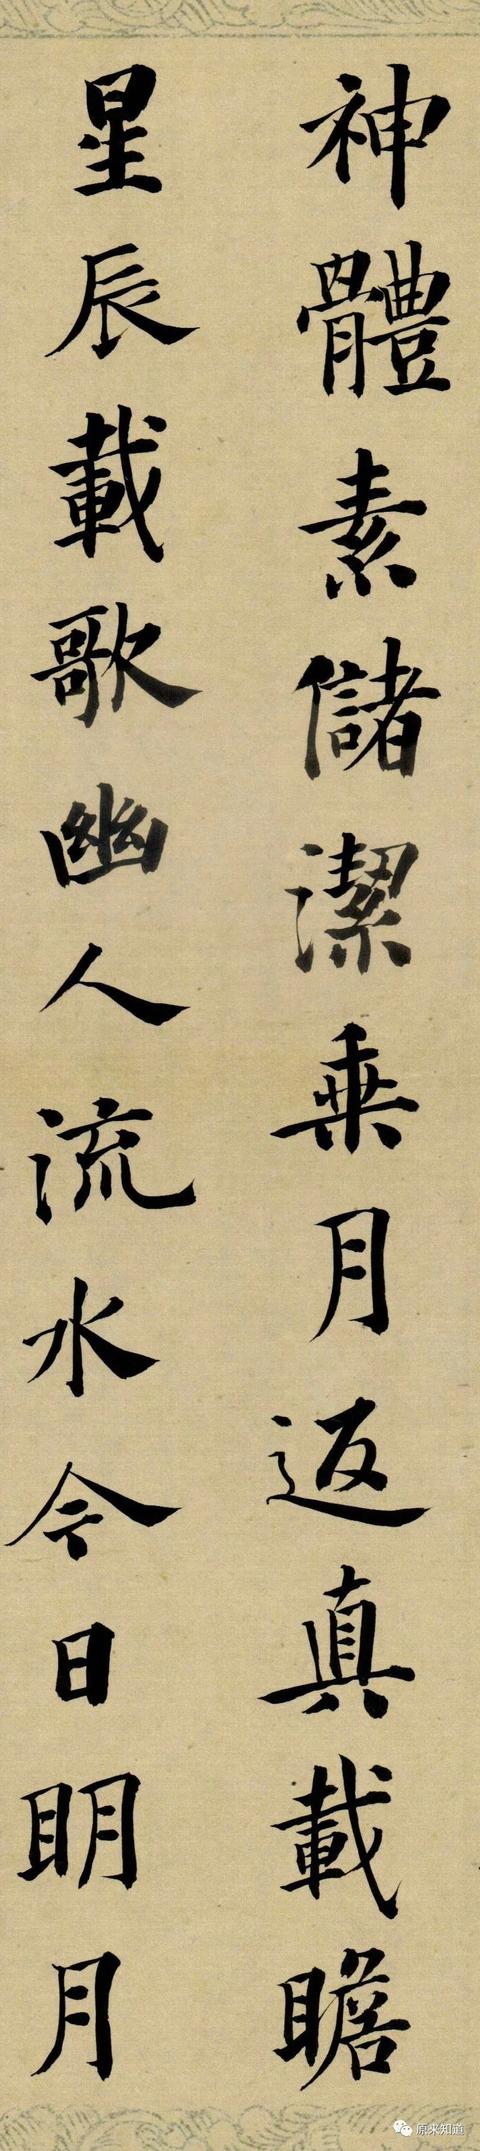 神體素儲潔乗月返真載瞻
星辰載歌幽人流水今日明月
原来知道